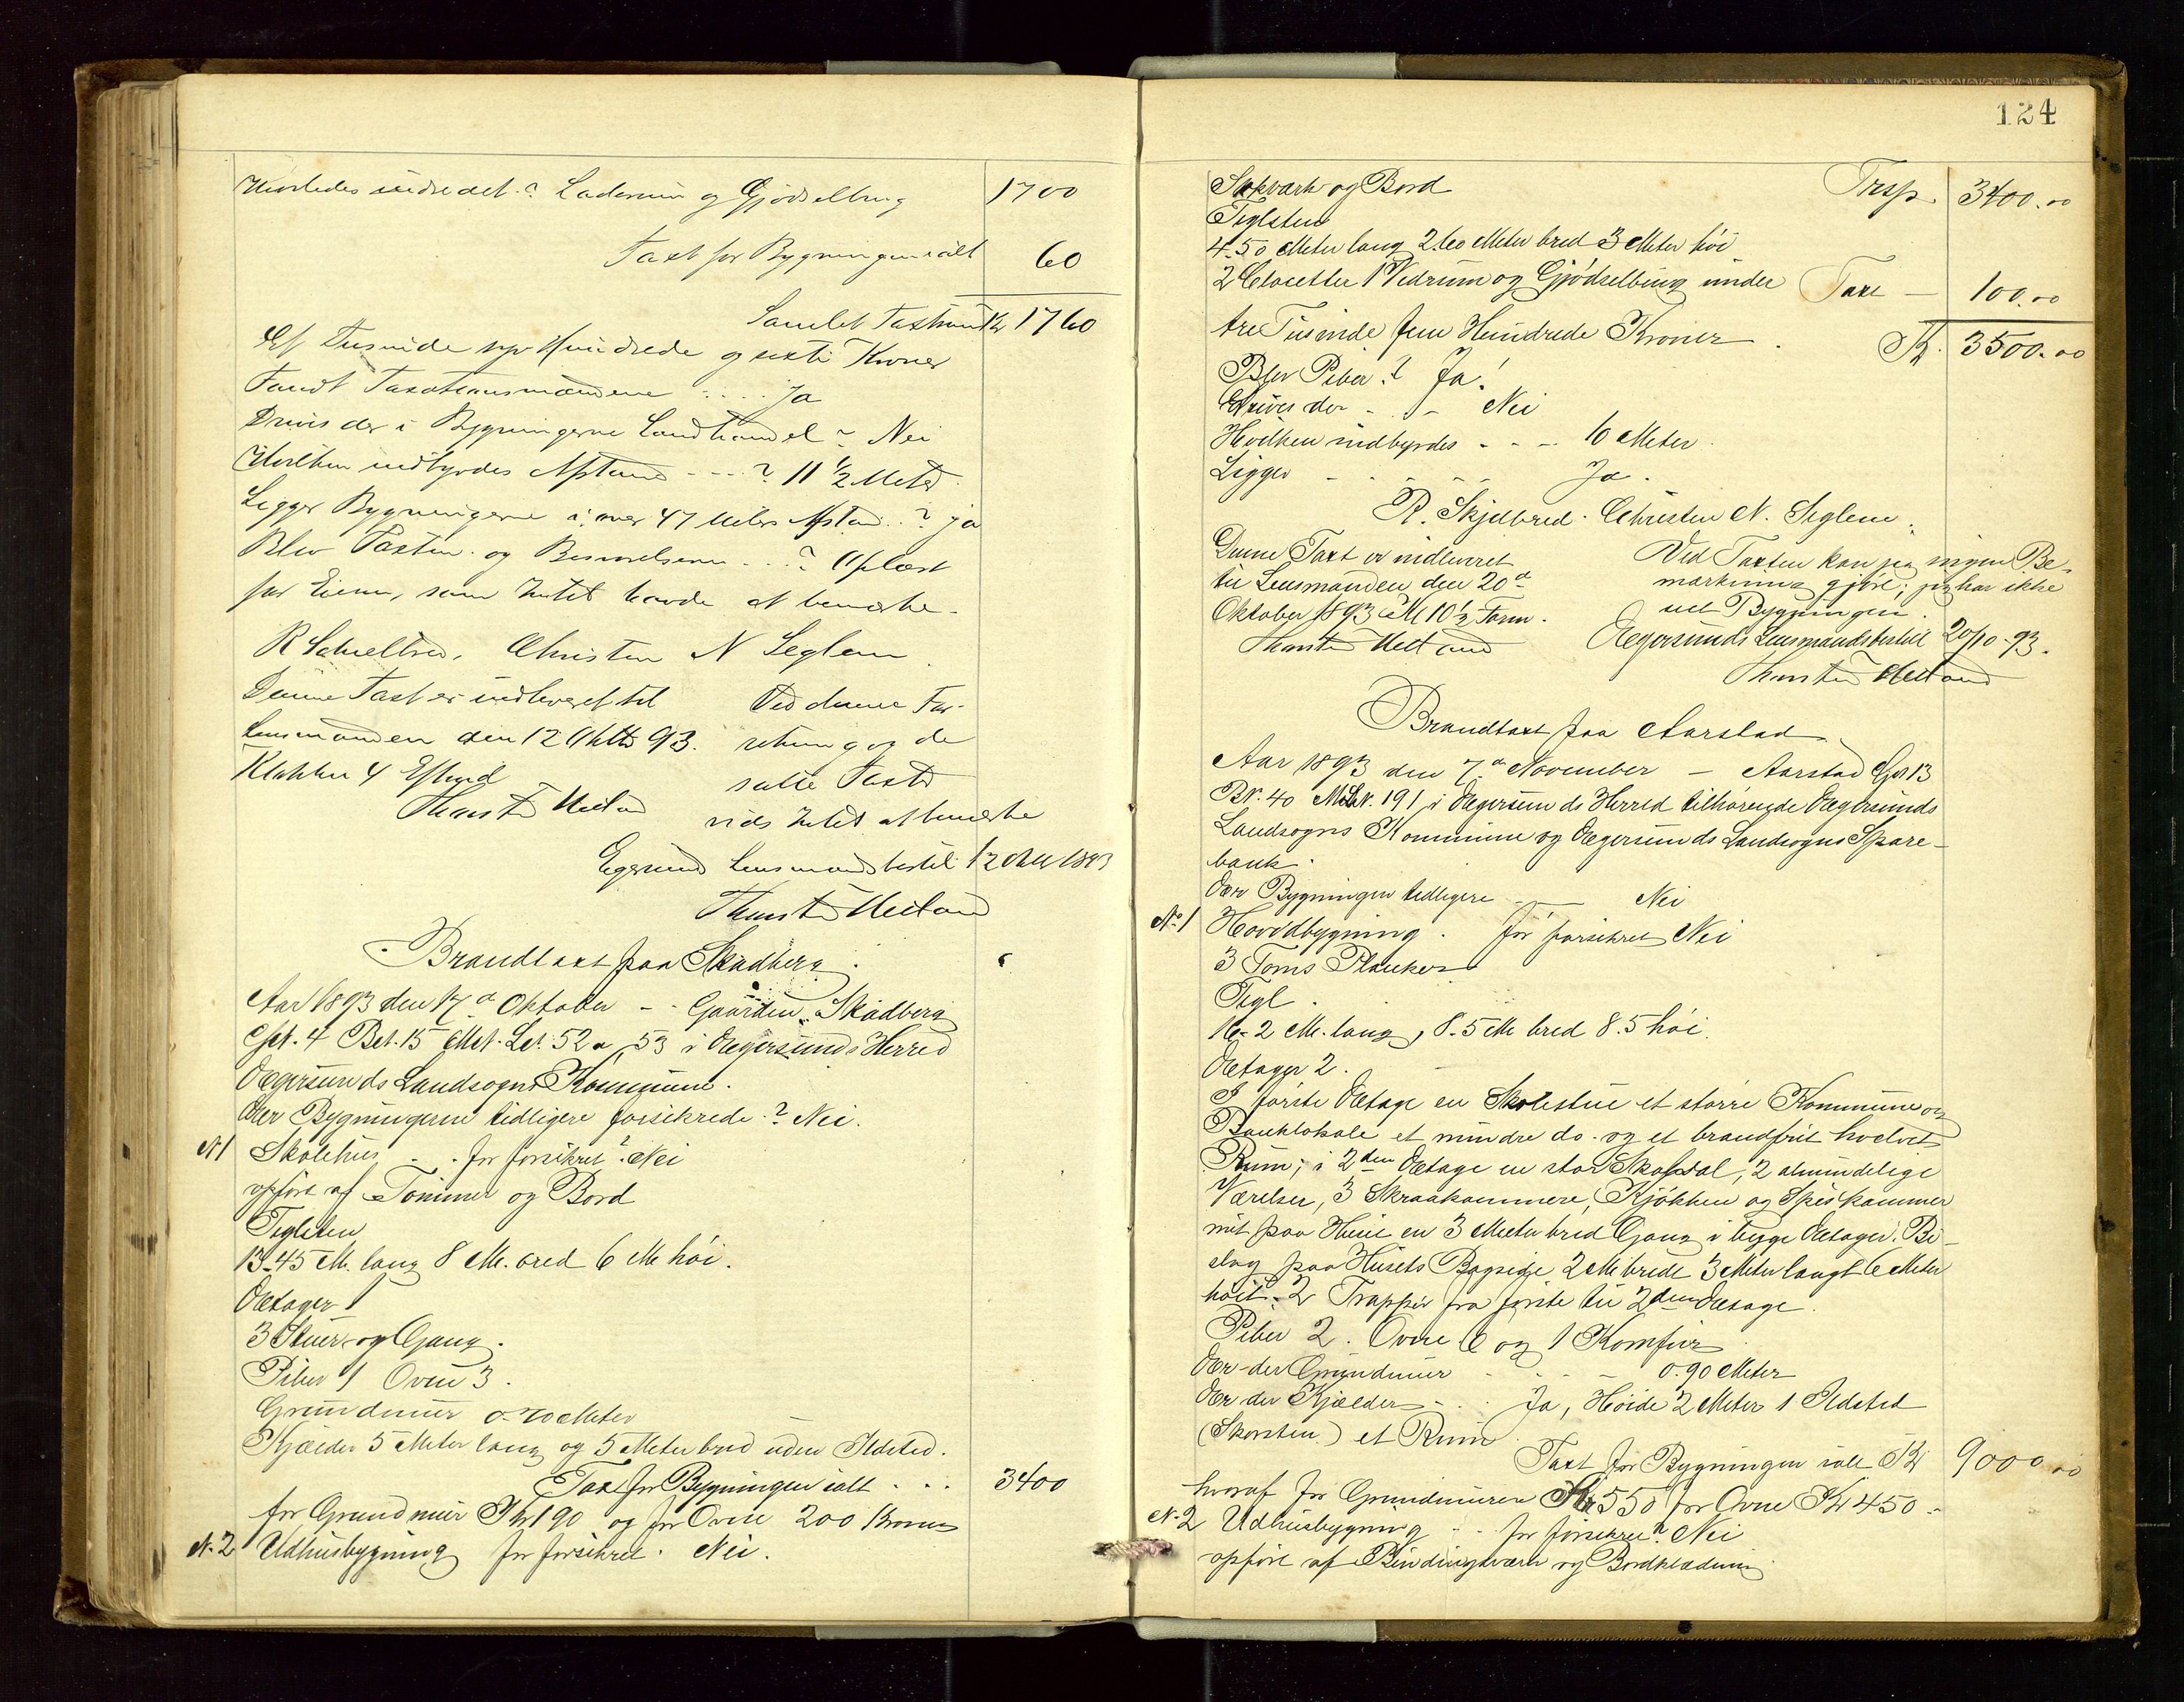 Hvorledes indredet? Laderum og Gjödselbing 1700
Taxt for Bygningen ialt 60
Samlet Taxtsum Kr 1760
Et Tusinde syv Hundrede og sexti Kroner
Fandt Taxationsmændene .... Ja
Drives der i Bygningerne Landhandel? Nei
Hvilken indbyrdes Afstand ---? 11 1/2 Meter
Ligger Bygningerne i over 47 Meters Afstand ..? ja
Blev Taxten og Beskrivelsen ...? Oplæst
for Eieren, som Intet havde at bemærke.
R Schelbred, Christen N Seglem
Denne Taxt er indleveret til
Lensmanden den 12 Oktb 93.
Klokken 4 Eftmd
Thorsten Meiland
Ved denne For-
retning og de
satte Taxter
vides Intet at bemærke
Egersund Lensmandsbestil 12 Okt 1893
Thorsten Meiland
Brandtaxt paa Skadberg
Aar 1893 den 17d Oktober -- Gaarden Skadberg
Get. 4 Bet. 15 Met. Let. 52a, 53 i Ægersunds Herred
Ægersunds Landsogns Kommune.
Ær Bygningerne tidligere forsikrede? Nei.
N1 Skolehus - - för forsikret? Nei
opfört af Tömmer og Bord
Teglsten
13-45 M. lang 8 M. bred 6 M höi.
Ætager 1
3 Stuer og Gang.
Piber 1 Ovne 3.
Grundmur 0-70 Meter
Kjælder 5 Meter lang og 5 Meter bred uden Ildsted.
Taxt for Bygningen ialt . . . 3400
for Grundmur Kr 190 og for Ovne 200 Kroner
N. 2 Udhusbygning för forsikret. Nei.
124
Sakværk og Bord Trsp. 3400.00
Teglsten
4-50 Meter lang 2.60 Meter bred 3 Meter höi
2 Closetter 1 Vedrum og Gjödselbing under Taxt — 100.00
tre Tusinde fem Hundrede Kroner . Kr. 3500.00
Blev Piber? Ja!
Drives der - - - Nei
Hvilken indbyrdes - - - 10 Meter.
Ligger - - - - - Ja.
R. Skjelbred. Christen N. Seglem.
Denne Taxt er indleveret
til Lensmanden den 20d
Oktober 1893 Kl 10 1/2 Form.
Thorsten Meiland
Ved Taxten kan jeg ingen Be-
mærkning gjöre; jeg har ikke
set Bygningen.
Ægersunds Lensmandsbestill 20/10-93.
Thorsten Meiland
Brandtaxt paa Aarstad
Aar 1893 den 7d November — Aarstad Gr 13
Br. 40 M.Lr. 191 i Ægersunds Herred tilhörende Ægersunds
Landsogns Kommune og Ægersunds Landsogns Spare-
bank.
Ær Bygningen tidligere --- Nei
No 1 Hovedbygning. för forsikret Nei
3 Toms Planker
Tegl.
16-2 M. lang, 8-5 M bred 8.5 höi.
Ætager 2.
I förste Ætage en Skolestue et större Kommune og
Banklokale et mindre do. og et brandfrit hvelvet
Rum; i 2den Ætage en stor Skolesal, 2 almindelige
Værelser, 3 Skraakammere, Kjökken og Spiskammer
mit paa Huset en 3 Meter bred Gang i begge Ætager. Bi-
slag paa Husets Bagside 2 M bredt 3 Meter langt 6 Meter
höit. 2 Trapper fra förste til 2den Ætage.
Piber 2. Ovne 6 og 1 Komfur
Ær der Grundmur - - - - 0.90 Meter
Ær der Kjælder - . . Ja, Höide 2 Meter 1 Ildsted
(Skorsten) et Rum
Taxt for Bygningen ialt Kr 9000.00
hvoraf for Grundmuren Kr 550 for Ovne Kr 450-
N. 2 Udhusbygning - - för forsikret? Nei
opfört af Bindingsværk og Bordklædning